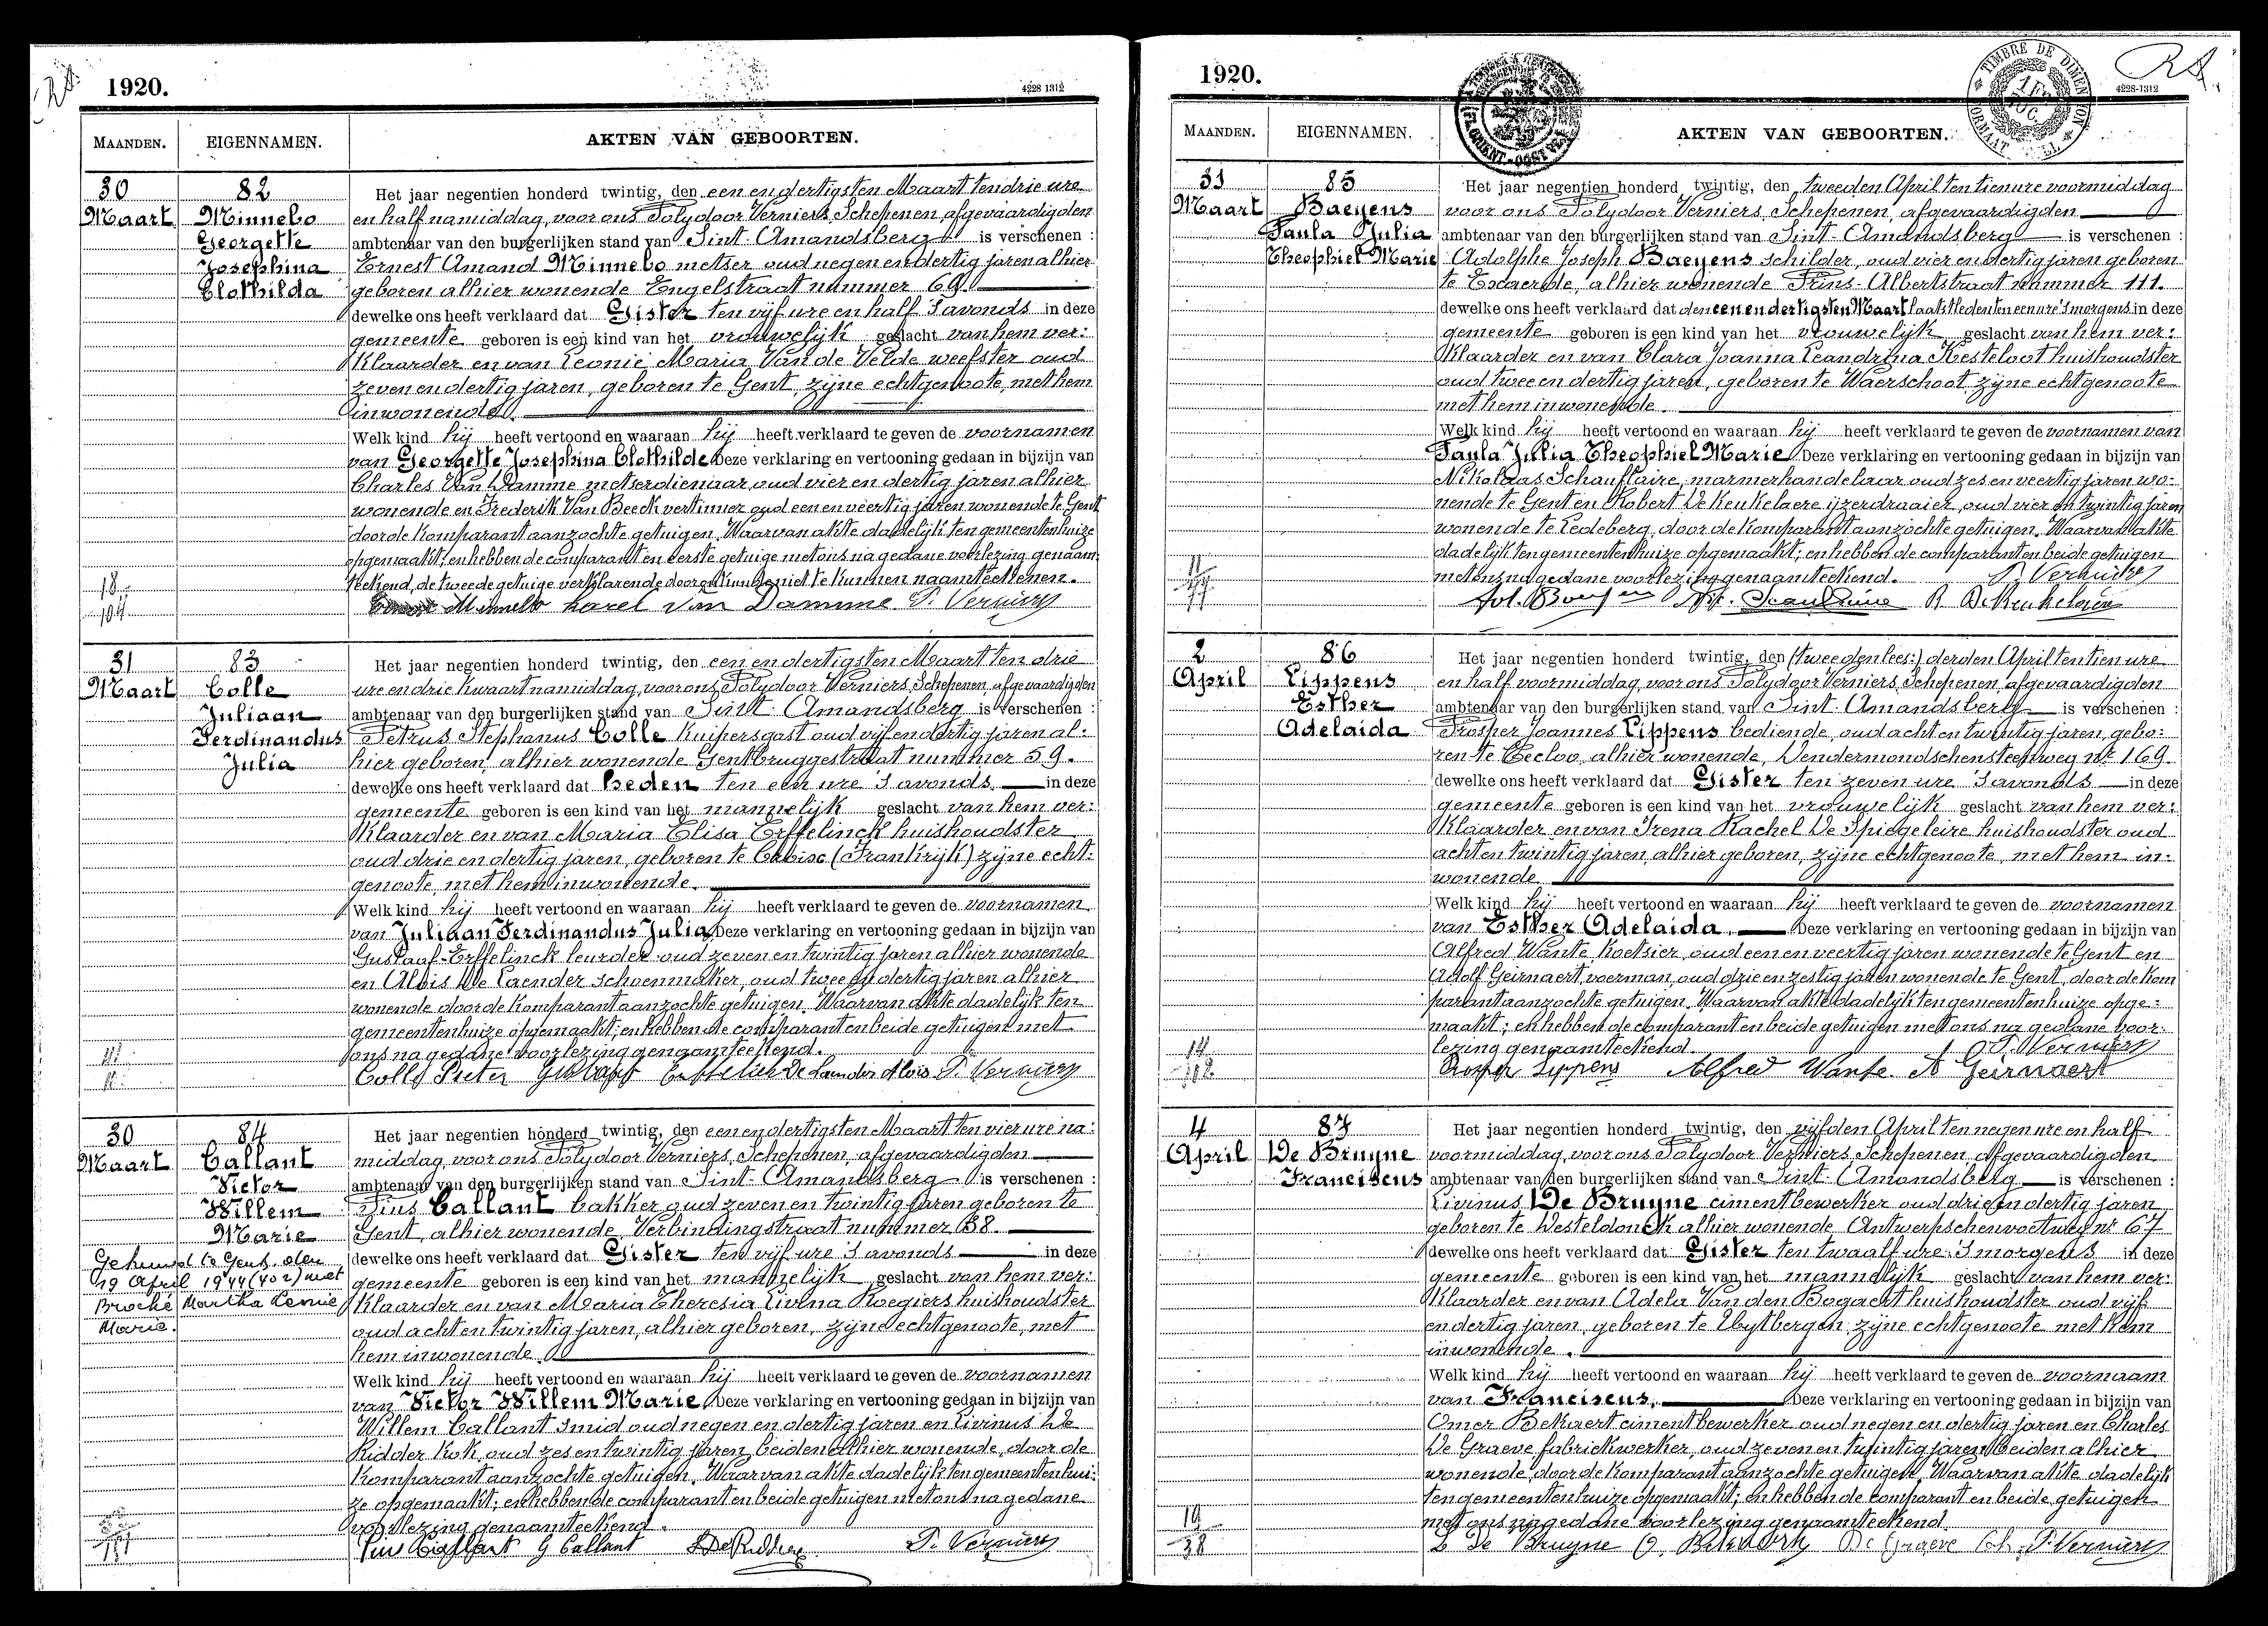 1920.
4228 1312
MAANDEN.
EIGENNAMEN.
AKTEN VAN GEBOORTEN.
30
Maart
82
Minnebo
Georgette
Josephina
Clothilda
Het jaar negentien honderd twintig, den een en dertigsten Maart ten drie ure
en half namiddag, voor ons Polydoor Verniers, Schepenen, afgevaardigden
ambtenaar van den burgerlijken stand van Sint-Amandsberg is verschenen :
Ernest Amand Minnebo metser, oud negen en dertig jaren alhier
geboren alhier wonende Engelstraat nummer 69.
dewelke ons heeft verklaard dat Gister ten vijf ure en half 's avonds in deze
gemeente geboren is een kind van het vrouwelijk geslacht van hem ver:
klaarder en van Leonie Maria Van de Velde weefster oud
zeven en dertig jaren, geboren te Gent, zijne echtgenoote, met hem
inwonende.
Welk kind hij heeft vertoond en waaraan hij heeft verklaard te geven de voornamen
van Georgette Josephina Clothilde Deze verklaring en vertooning gedaan in bijzijn van
Charles Van Damme metserdienaar, oud vier en dertig jaren alhier
wonende en Frederik Van Beeck vertinner oud een en veertig jaren wonende te Gent
door de komparant aanzochte getuigen. Waarvan akte dadelijk ten gemeentenhuize
opgemaakt; en hebben de comparant en eerste getuige met ons na gedane voorlezing genaam:
teekend, de tweede getuige verklarende door onkunde niet te kunnen naamteekenen.
Ernest Minnebo Karel Van Damme P. Verniers
31
Maart
83
Colle
Juliaan
Ferdinandus
Julia
Het jaar negentien honderd twintig, den een en dertigsten Maart ten drie
ure en drie kwaart namiddag, voor ons Polydoor Verniers, Schepenen, afgevaardigden
ambtenaar van den burgerlijken stand van Sint-Amandsberg is verschenen :
Petrus Stephanus Colle kuipersgast oud vijf en dertig jaren al:
hier geboren, alhier wonende Gentbruggestraat nummer 59.
dewelke ons heeft verklaard dat heden ten een ure 's avonds in deze
gemeente geboren is een kind van het mannelijk geslacht van hem ver:
klaarder en van Maria Elisa Erffelinck huishoudster
oud drie en dertig jaren, geboren te (Frankrijk) zijne echt:
genoote, met hem inwonende.
Welk kind hij heeft vertoond en waaraan hij heeft verklaard te geven de voornamen
van Juliaan Ferdinandus Julia Deze verklaring en vertooning gedaan in bijzijn van
Gustaaf Erffelinck leurder oud zeven en twintig jaren alhier wonende
en Alois De Laender schoenmaker, oud twee en dertig jaren alhier
wonende door de komparant aanzochte getuigen. Waarvan akte dadelijk ten
gemeentenhuize opgemaakt; en hebben de comparant en beide getuigen met
ons na gedane voorlezing genaamteekend.
Colle Pieter Gustaaf Erffelinck De Laender Alois P. Verniers
30
Maart
84
Callant
Victor
Willem
Marie
Gehuwd te Gent, den
19 April 1944 (402) met
Broché Martha Leonie
Marie.
Het jaar negentien honderd twintig, den een en dertigsten Maart ten vier ure na:
middag, voor ons Polydoor Verniers, Schepenen, afgevaardigden
ambtenaar van den burgerlijken stand van Sint-Amandsberg is verschenen :
Pius Callant bakker oud zeven en twintig jaren geboren te
Gent, alhier wonende, Verbindingstraat nummer 38.
dewelke ons heeft verklaard dat Gister ten vijf ure 's avonds in deze
gemeente geboren is een kind van het mannelijk geslacht van hem ver:
klaarder en van Maria Theresia Livina Roegiers huishoudster
oud acht en twintig jaren, alhier geboren, zijne echtgenoote, met
hem inwonende.
Welk kind hij heeft vertoond en waaraan hij heeft verklaard te geven de voornamen
van Victor Willem Marie Deze verklaring en vertooning gedaan in bijzijn van
Willem Callant smid oud negen en dertig jaren en Livinus De
Ridder kok, oud zes en twintig jaren, beiden alhier wonende, door de
komparant aanzochte getuigen. Waarvan akte dadelijk ten gemeentenhui:
ze opgemaakt; en hebben de comparant en beide getuigen met ons na gedane
voorlezing genaamteekend.
Pius Callant G Callant L De Ridder P. Verniers
1920.
4228-1312
TIMBRE DE DIMENSION
MAANDEN.
EIGENNAMEN.
AKTEN VAN GEBOORTEN.
31
Maart
85
Baeyens
Paula Julia
Theophiel Marie
Het jaar negentien honderd twintig, den tweeden April ten tien ure voormiddag
voor ons Polydoor Verniers, Schepenen, afgevaardigden
ambtenaar van den burgerlijken stand van Sint-Amandsberg is verschenen :
Adolphe Joseph Baeyens schilder, oud vier en dertig jaren geboren
te Exaerde, alhier wonende Prins-Albertstraat nummer 111.
dewelke ons heeft verklaard dat den een en dertigsten Maart laatstleden ten een ure 's morgens in deze
gemeente geboren is een kind van het vrouwelijk geslacht van hem ver:
klaarder en van Clara Joanna Leandrina Kesteloot huishoudster
oud twee en dertig jaren, geboren te Waerschoot zijne echtgenoote
met hem inwonende.
Welk kind hij heeft vertoond en waaraan hij heeft verklaard te geven de voornamen van
Paula Julia Theophiel Marie Deze verklaring en vertooning gedaan in bijzijn van
Nikolaas Schauflaire, marmerhandelaar oud zes en veertig jaren wo:
nende te Gent en Robert De Keukelaere ijzerdraaier, oud vier en twintig jaren
wonende te Ledeberg, door de komparant aanzochte getuigen. Waarvan akte
dadelijk ten gemeentenhuize opgemaakt; en hebben de comparant en beide getuigen
met ons na gedane voorlezing genaamteekend. P. Verniers
R De Keukelaere
2
April
86
Lippens
Esther
Adelaida
Het jaar negentien honderd twintig, den (tweeden lees:) derden April ten tien ure
en half voormiddag, voor ons Polydoor Verniers, Schepenen, afgevaardigden
ambtenaar van den burgerlijken stand van Sint-Amandsberg is verschenen :
Prosper Joannes Lippens bediende, oud acht en twintig jaren, gebo:
ren te Eecloo, alhier wonende, Dendermondschensteenweg nr 169.
dewelke ons heeft verklaard dat Gister ten zeven ure 's avonds in deze
gemeente geboren is een kind van het vrouwelijk geslacht van hem ver:
klaarder en van Irena Rachel De Spiegeleire huishoudster oud
acht en twintig jaren, alhier geboren, zijne echtgenoote, met hem in:
wonende
Welk kind hij heeft vertoond en waaraan hij heeft verklaard te geven de voornamen
van Esther Adelaida. Deze verklaring en vertooning gedaan in bijzijn van
Alfred Wante, koetsier, oud een en veertig jaren wonende te Gent en
Adolf Geirnaert voerman, oud drie en zestig jaren wonende te Gent, door de kom
parant aanzochte getuigen. Waarvan akte dadelijk ten gemeentenhuize opge:
maakt; en hebben de comparant en beide getuigen met ons na gedane voor:
lezing genaamteekend. P. Verniers
Prosper Lippens Alfred Wante. A Geirnaert
4
April
87
De Bruyne
Franciscus
Het jaar negentien honderd twintig, den vijfden April ten negen ure en half
voormiddag, voor ons Polydoor Verniers, Schepenen, afgevaardigden
ambtenaar van den burgerlijken stand van Sint-Amandsberg is verschenen :
Livinus De Bruyne cimentbewerker oud drie en dertig jaren
geboren te Desteldonck alhier wonende Antwerpschenvoetweg nr 67
dewelke ons heeft verklaard dat Gister ten twaalf ure 's morgens in deze
gemeente geboren is een kind van het mannelijk geslacht van hem ver:
klaarder en van Adela Van den Bogaert huishoudster oud vijf
en dertig jaren, geboren te Uytbergen zijne echtgenoote met hem
inwonende.
Welk kind hij heeft vertoond en waaraan hij heeft verklaard te geven de voornaam
van Franciscus. Deze verklaring en vertooning gedaan in bijzijn van
Omer Bekaert cimentbewerker oud negen en dertig jaren en Charles
De Graeve fabriekwerker, oud zeven en twintig jaren beiden alhier
wonende door de komparant aanzochte getuigen. Waarvan akte dadelijk
ten gemeentenhuize opgemaakt; en hebben de comparant en beide getuigen
met ons na gedane voorlezing genaamteekend.
L De Bruyne O. Bekaert De Graeve Ch. P. Verniers